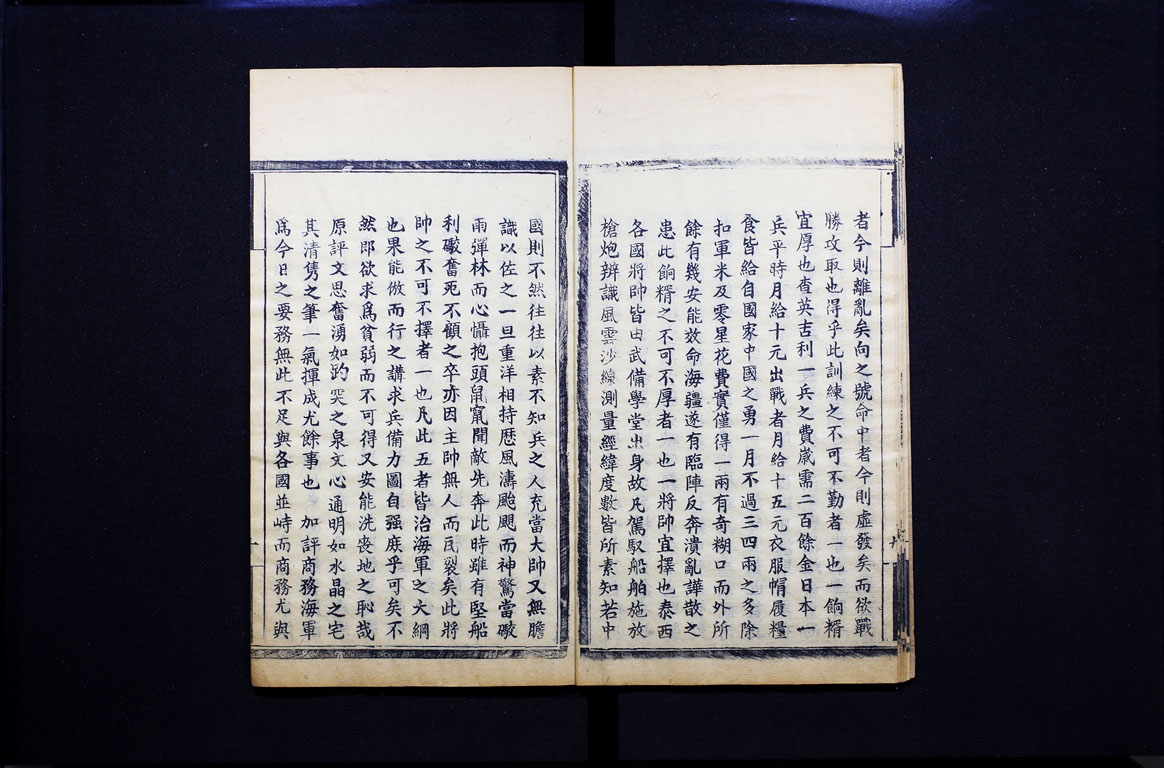 者今則離亂矣向之號命中者今則虛發矣而欲戰
勝攻取也得乎此訓練之不可不勤者一也一餉糈
宜厚也查英吉利一兵之費歲需二百餘金日本一
兵平時月給十元出戰者月給十五元衣服帽履糧
食皆給自國家中國之勇一月不過三四兩之多除
扣軍米及零星花費實僅得一兩有奇糊口而外所
餘有幾安能效命海疆遂有臨陣反奔潰亂譁散之
患此餉糈之不可不厚者一也一將帥宜擇也泰西
各國將帥皆由武備學堂出身故凡駕馭船舶施放
槍炮辨識風雲沙線測量經緯度數皆所素知若中
國則不然往往以素不知兵之人充當大帥又無膽
識以佐之一旦重洋相持歷風濤颱颶而神驚當礮
雨彈林而心懾抱頭鼠竄聞敵先奔此時雖有堅船
利礮奮死不顧之卒亦因主帥無人而瓦裂矣此將
帥之不可不擇者一也凡此五者皆治海軍之大綱
也果能倣而行之講求兵備力圖自强庶乎可矣不
然即欲求爲貧弱而不可得又安能洗喪地之恥哉
原評文思奮湧如趵突之泉文心通明如水晶之宅
其清雋之筆一氣揮成尤餘事也 加評商務海軍
爲今日之要務無此不足與各國並峙而商務尤與